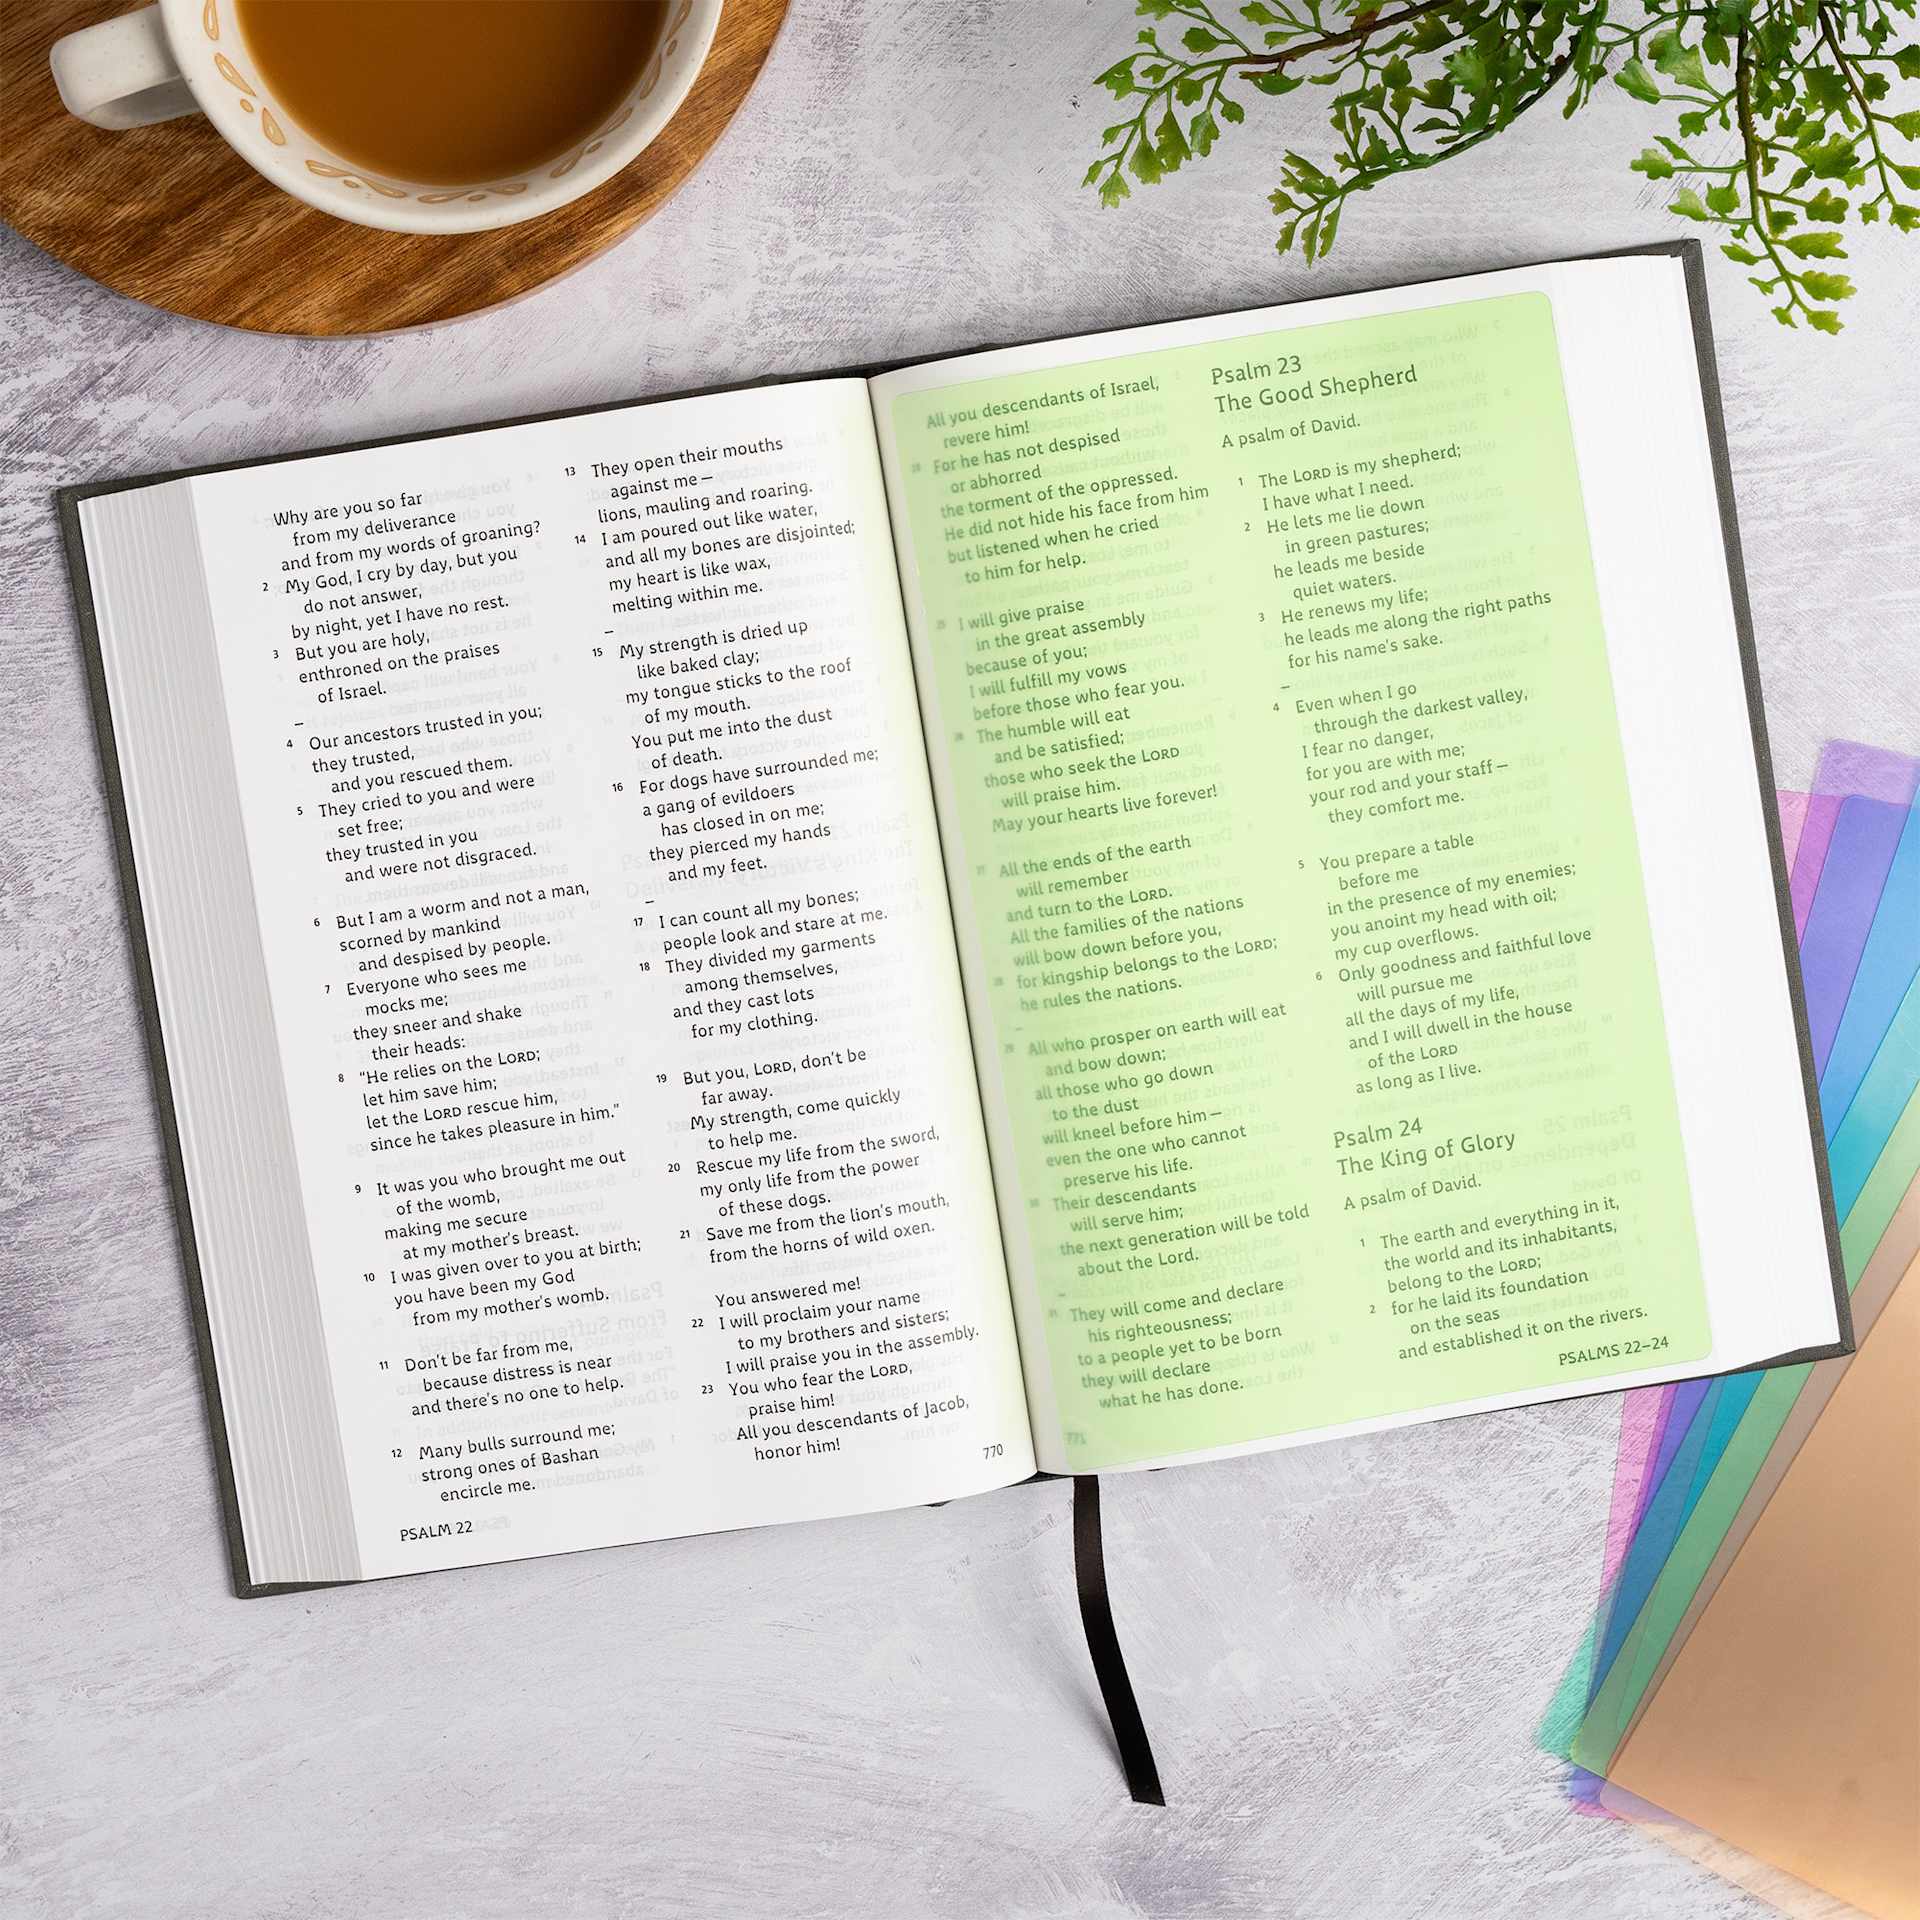 Why are you so far
from my deliverance
and from my words of groaning?
2 My God, I cry by day, but you
do not answer,
by night, yet I have no rest.
3 But you are holy,
enthroned on the praises
of Israel.
–
4 Our ancestors trusted in you;
they trusted,
and you rescued them.
5 They cried to you and were
set free;
they trusted in you
and were not disgraced.
6 But I am a worm and not a man,
scorned by mankind
and despised by people.
7 Everyone who sees me
mocks me;
they sneer and shake
their heads:
8 “He relies on the LORD;
let him save him;
let the LORD rescue him,
since he takes pleasure in him.”
9 It was you who brought me out
of the womb,
making me secure
at my mother's breast.
10 I was given over to you at birth;
you have been my God
from my mother's womb.
11 Don't be far from me,
because distress is near
and there's no one to help.
12 Many bulls surround me;
strong ones of Bashan
encircle me.
PSALM 22
13 They open their mouths
against me –
lions, mauling and roaring.
14 I am poured out like water,
and all my bones are disjointed;
my heart is like wax,
melting within me.
–
15 My strength is dried up
like baked clay;
my tongue sticks to the roof
of my mouth.
You put me into the dust
of death.
16 For dogs have surrounded me;
a gang of evildoers
has closed in on me;
they pierced my hands
and my feet.
–
17 I can count all my bones;
people look and stare at me.
18 They divided my garments
among themselves,
and they cast lots
for my clothing.
19 But you, LORD, don't be
far away.
My strength, come quickly
to help me.
20 Rescue my life from the sword,
my only life from the power
of these dogs.
21 Save me from the lion's mouth,
from the horns of wild oxen.
You answered me!
22 I will proclaim your name
to my brothers and sisters;
I will praise you in the assembly.
23 You who fear the LORD,
praise him!
All you descendants of Jacob,
honor him!
770
All you descendants of Israel,
revere him!
24 For he has not despised
or abhorred
the torment of the oppressed.
He did not hide his face from him
but listened when he cried
to him for help.
25 I will give praise
in the great assembly
because of you;
I will fulfill my vows
before those who fear you.
26 The humble will eat
and be satisfied;
those who seek the LORD
will praise him.
May your hearts live forever!
27 All the ends of the earth
will remember
and turn to the LORD.
All the families of the nations
will bow down before you,
28 for kingship belongs to the LORD;
he rules the nations.
–
29 All who prosper on earth will eat
and bow down;
all those who go down
to the dust
will kneel before him –
even the one who cannot
preserve his life.
30 Their descendants
will serve him;
the next generation will be told
about the Lord.
–
31 They will come and declare
his righteousness;
to a people yet to be born
they will declare
what he has done.
771
Psalm 23
The Good Shepherd
A psalm of David.
1 The LORD is my shepherd;
I have what I need.
2 He lets me lie down
in green pastures;
he leads me beside
quiet waters.
3 He renews my life;
he leads me along the right paths
for his name's sake.
–
4 Even when I go
through the darkest valley,
I fear no danger,
for you are with me;
your rod and your staff –
they comfort me.
5 You prepare a table
before me
in the presence of my enemies;
you anoint my head with oil;
my cup overflows.
6 Only goodness and faithful love
will pursue me
all the days of my life,
and I will dwell in the house
of the LORD
as long as I live.
Psalm 24
The King of Glory
A psalm of David.
1 The earth and everything in it,
the world and its inhabitants,
belong to the LORD;
2 for he laid its foundation
on the seas
and established it on the rivers.
PSALMS 22–24